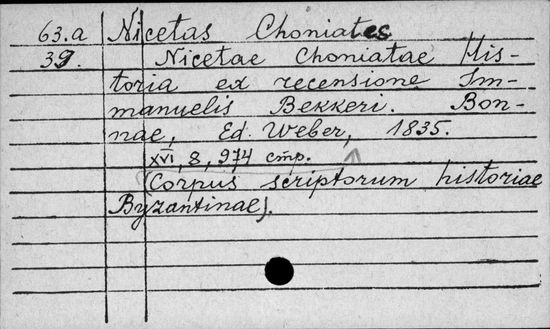 63.a Nicetas Choniates
39. Nicetae Choniatae His-
toria ex recensione Im-
manuelis Bekkeri. Bon-
nae, Ed. Weber, 1835.
XVI, 8, 974 стр.
(Corpus scriptorum historiae
Byzantinae).